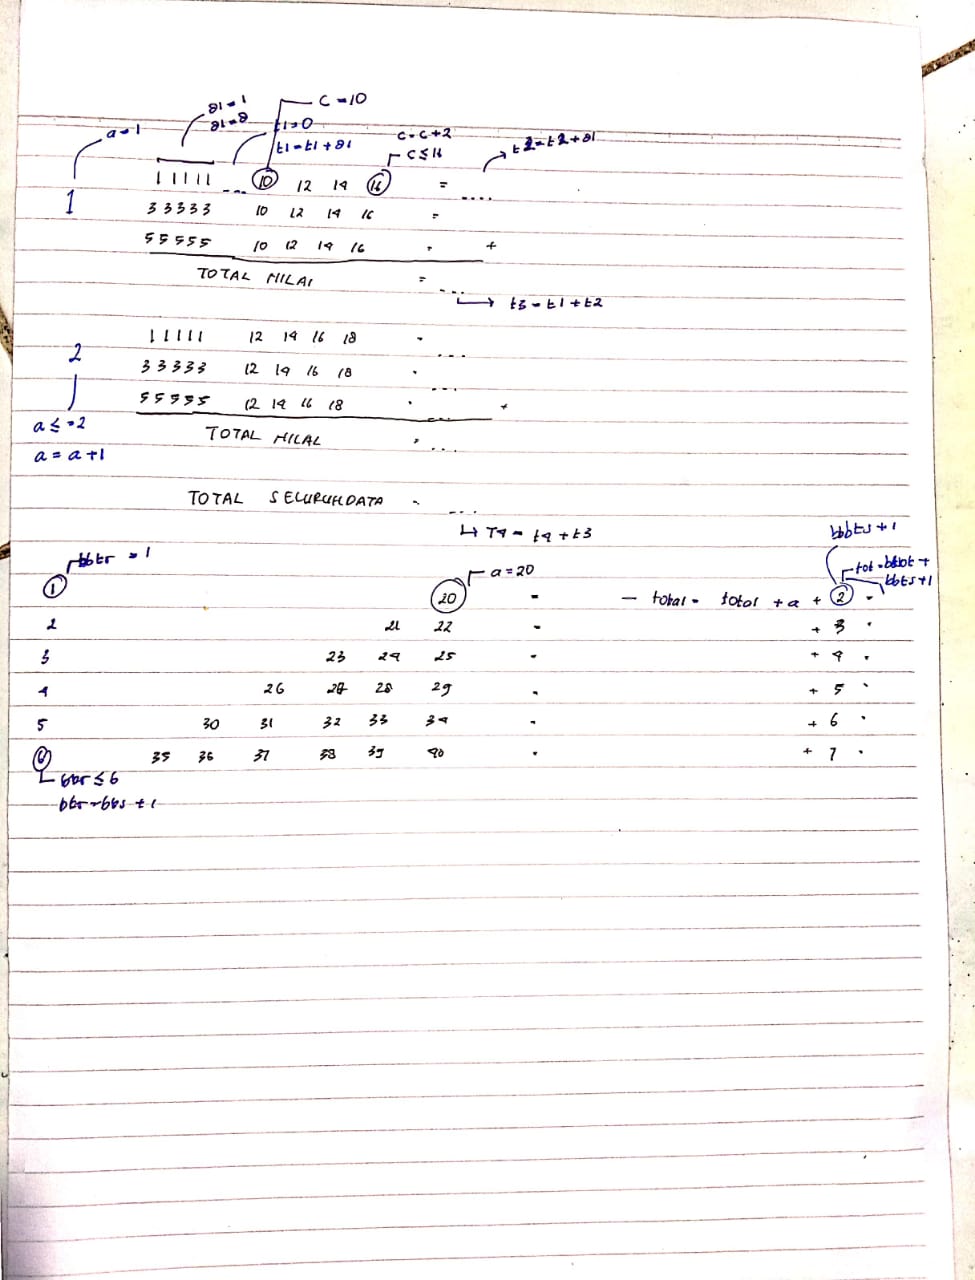 a1 = 1
C = 10
a1 = a
t1 = 0
a = 1
t1 = t1 + a1
C = C + 2
C ≤ 16
t2 = t2 + a1
1
1 1 1 1 1 ... 10 12 14 16 = ....
3 3 3 3 3 10 12 14 16 =
5 5 5 5 5 10 12 14 16 = +
TOTAL NILAI = ...
t3 = t1 + t2
2
1 1 1 1 1 12 14 16 18 = ...
3 3 3 3 3 12 14 16 18 = ...
5 5 5 5 5 12 14 16 18 = ... +
a ≤ = 2
TOTAL NILAI = ...
a = a + 1
TOTAL SELURUH DATA = ...
T4 = t4 + t3
bbts + 1
bbtr = 1
a = 20
bbts + 1
1 20 = – total = total + a + 2 =
2 21 22 = + 3 =
3 23 24 25 = + 4 =
4 26 27 28 29 = + 5 =
5 30 31 32 33 34 = + 6 =
6 35 36 37 38 39 40 = + 7 =
bbr ≤ 6
btr = bbs + 1